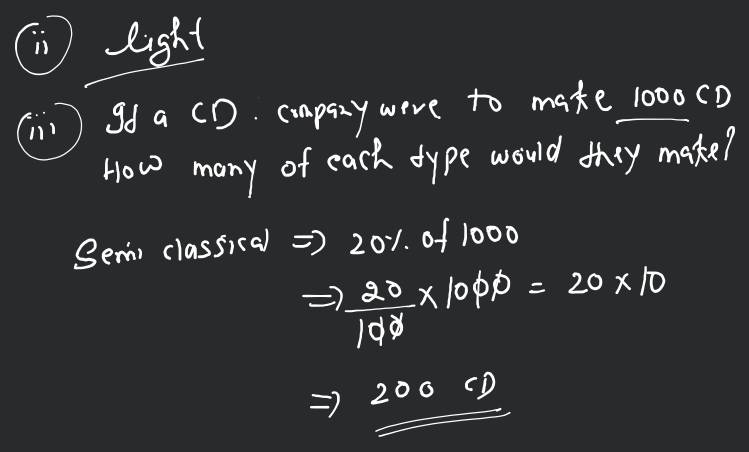 (ii) light
(iii) If a CD. company were to make 1000 CD
How many of each type would they make?
Semi classical ⇒ 20% of 1000
⇒ 20/100 × 1000 = 20 × 10
⇒ 200 CD